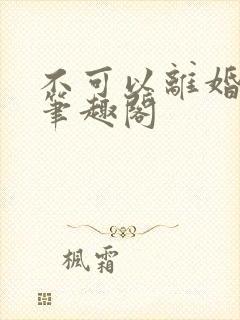 不可以離婚
筆趣閣
楓霜